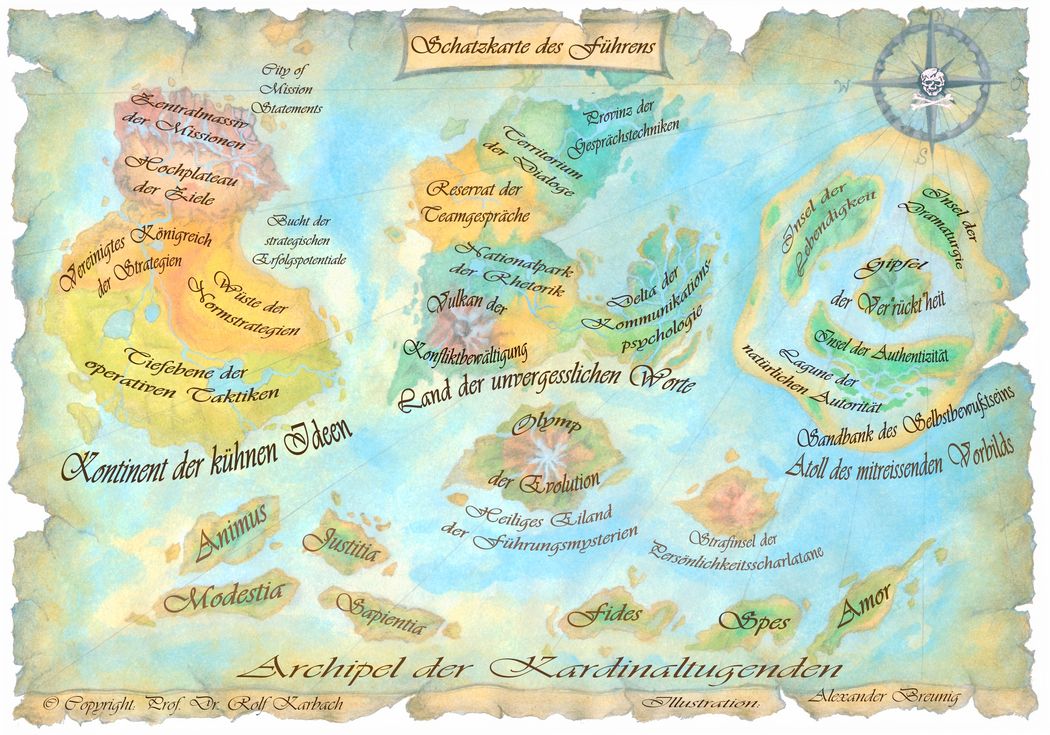 Schatzkarte des Führens
N
W
O
S
City of
Mission
Statements
Zentralmassiv
der Missionen
Hochplateau
der Ziele
Bucht der
strategischen
Erfolgspotentiale
Vereinigtes Königreich
der Strategien
Wüste der
Normstrategien
Tiefebene der
operativen Taktiken
Kontinent der kühnen Ideen
Provinz der
Gesprächstechniken
Territorium
der Dialoge
Reservat der
Teamgespräche
Nationalpark
der Rhetorik
Vulkan der
Konfliktbewältigung
Delta der
Kommunikations-
psychologie
Land der unvergesslichen Worte
Insel der
Lebendigkeit
Insel der
Dramaturgie
Gipfel
der Ver"rückt"heit
Insel der Authentizität
Lagune der
natürlichen Autorität
Sandbank des Selbstbewußtseins
Atoll des mitreissenden Vorbilds
Olymp
der Evolution
Heiliges Eiland
der Führungsmysterien
Strafinsel der
Persönlichkeitsscharlatane
Animus
Justitia
Modestia
Sapientia
Fides
Spes
Amor
Archipel der Kardinaltugenden
© Copyright: Prof. Dr. Rolf Karbach
Illustration: Alexander Breunig